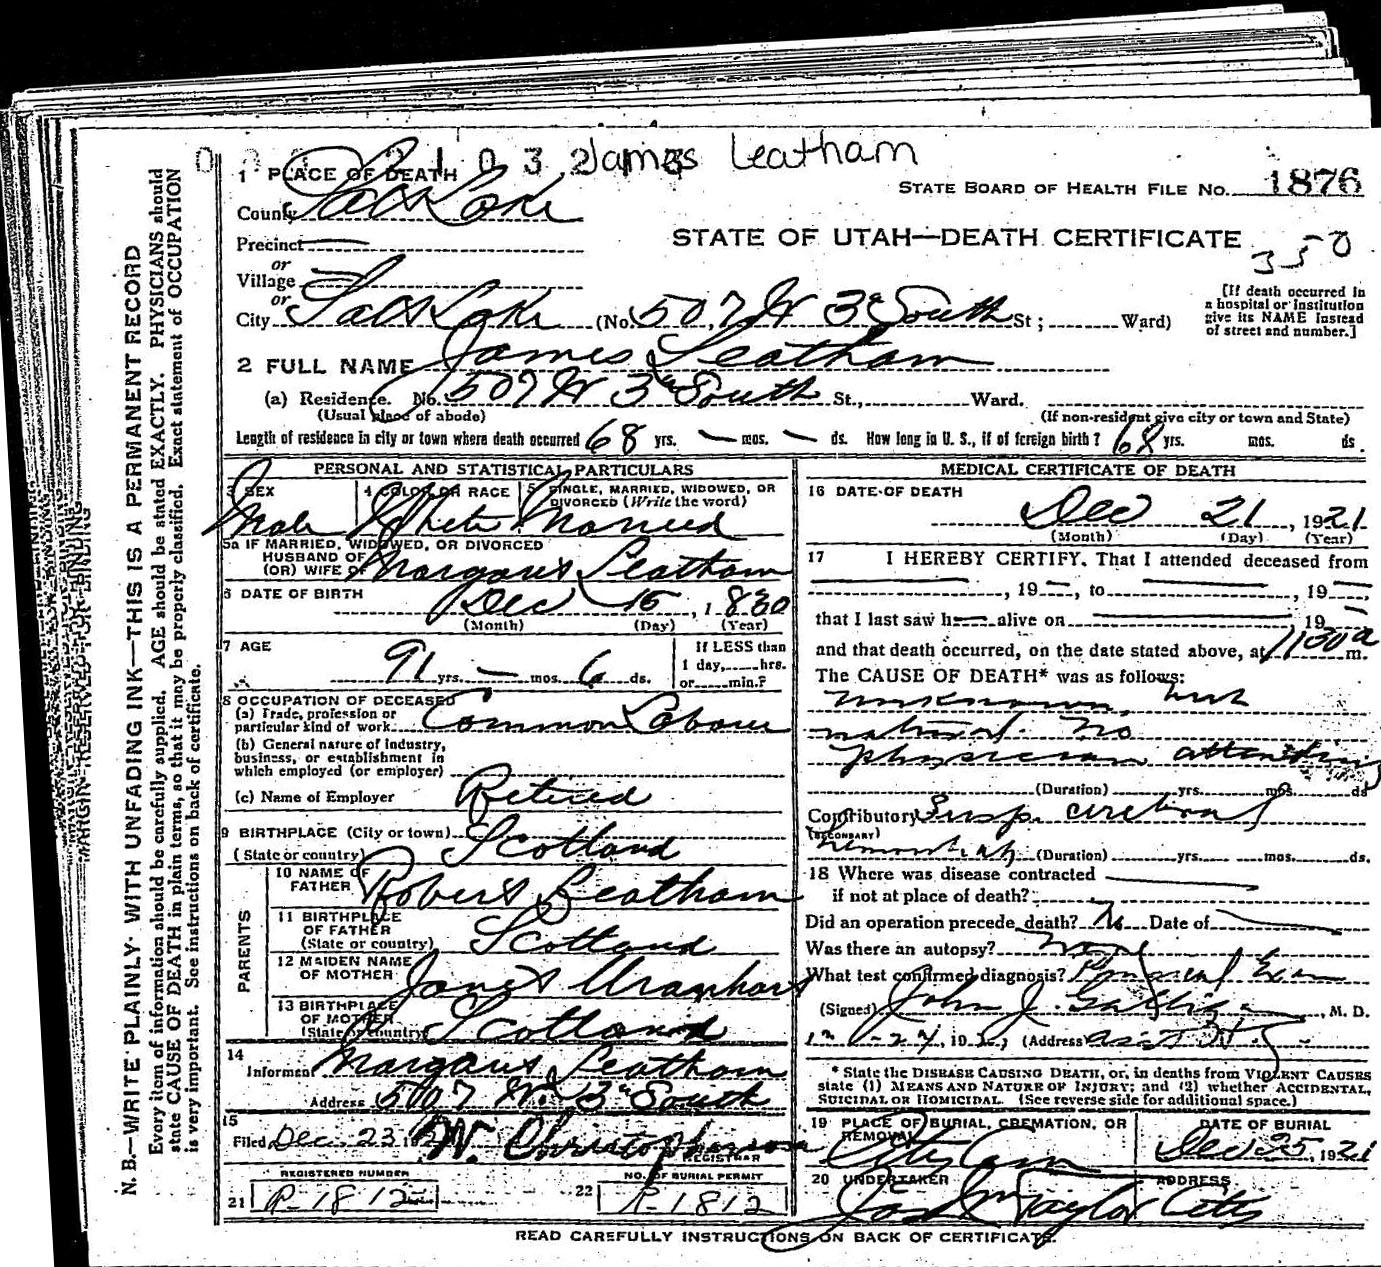 James Leatham
1 PLACE OF DEATH
STATE BOARD OF HEALTH FILE NO. 1876
County Salt Lake
Precinct
STATE OF UTAH—DEATH CERTIFICATE
350
or
Village
or
City Salt Lake (No. 507 W 3d South St; Ward)
[If death occurred in
a hospital or institution
give its NAME instead
of street and number.]
2 FULL NAME James Leatham
(a) Residence. No. 507 W 3d South St., Ward.
(Usual place of abode) (If non-resident give city or town and State)
Length of residence in city or town where death occurred 68 yrs. — mos. — ds. How long in U. S., if of foreign birth? 68 yrs. mos. ds.
PERSONAL AND STATISTICAL PARTICULARS
3 SEX
Male
4 COLOR OR RACE
White
5 SINGLE, MARRIED, WIDOWED, OR
DIVORCED (Write the word)
Married
5a IF MARRIED, WIDOWED, OR DIVORCED
HUSBAND OF
(OR) WIFE OF Margaret Leatham
6 DATE OF BIRTH
Dec 15, 1830
(Month) (Day) (Year)
7 AGE
91 yrs. — mos. 6 ds.
If LESS than
1 day, hrs.
or min.?
8 OCCUPATION OF DECEASED
(a) Trade, profession or
particular kind of work Common Labour
(b) General nature of industry,
business, or establishment in
which employed (or employer)
(c) Name of Employer Retired
9 BIRTHPLACE (City or town)
(State or country) Scotland
PARENTS
10 NAME OF
FATHER Robert Leatham
11 BIRTHPLACE
OF FATHER
(State or country) Scotland
12 MAIDEN NAME
OF MOTHER Janet Urquhart
13 BIRTHPLACE
OF MOTHER
(State or country) Scotland
14
Informant Margaret Leatham
Address 507 W. 3d South
15
Filed Dec. 23 W. Christopherson
REGISTRAR
REGISTERED NUMBER
21 R-1812
NO. OF BURIAL PERMIT
22 R-1812
MEDICAL CERTIFICATE OF DEATH
16 DATE OF DEATH
Dec 21, 1921
(Month) (Day) (Year)
17 I HEREBY CERTIFY, That I attended deceased from
, 19 , to , 19
that I last saw h alive on 19
and that death occurred, on the date stated above, at 1130 a m.
The CAUSE OF DEATH* was as follows:
unknown, but
natural. No
physician attending
(Duration) yrs. mos. ds
Contributory Susp. cerebral
(SECONDARY)
hemorrhage (Duration) yrs. mos. ds.
18 Where was disease contracted
if not at place of death?
Did an operation precede death? No Date of
Was there an autopsy?
What test confirmed diagnosis? Physical Exam
(Signed) John J. , M. D.
(Address
* State the DISEASE CAUSING DEATH, or, in deaths from VIOLENT CAUSES
state (1) MEANS AND NATURE OF INJURY; and (2) whether ACCIDENTAL,
SUICIDAL OR HOMICIDAL. (See reverse side for additional space.)
19 PLACE OF BURIAL, CREMATION, OR
REMOVAL
City Cem
DATE OF BURIAL
Dec 25, 1921
20 UNDERTAKER
Jos Wm Taylor
ADDRESS
City
READ CAREFULLY INSTRUCTIONS ON BACK OF CERTIFICATE.
MARGIN RESERVED FOR BINDING
N. B.—WRITE PLAINLY WITH UNFADING INK—THIS IS A PERMANENT RECORD
Every item of information should be carefully supplied. AGE should be stated EXACTLY. PHYSICIANS should
state CAUSE OF DEATH in plain terms, so that it may be properly classified. Exact statement of OCCUPATION
is very important. See instructions on back of certificate.